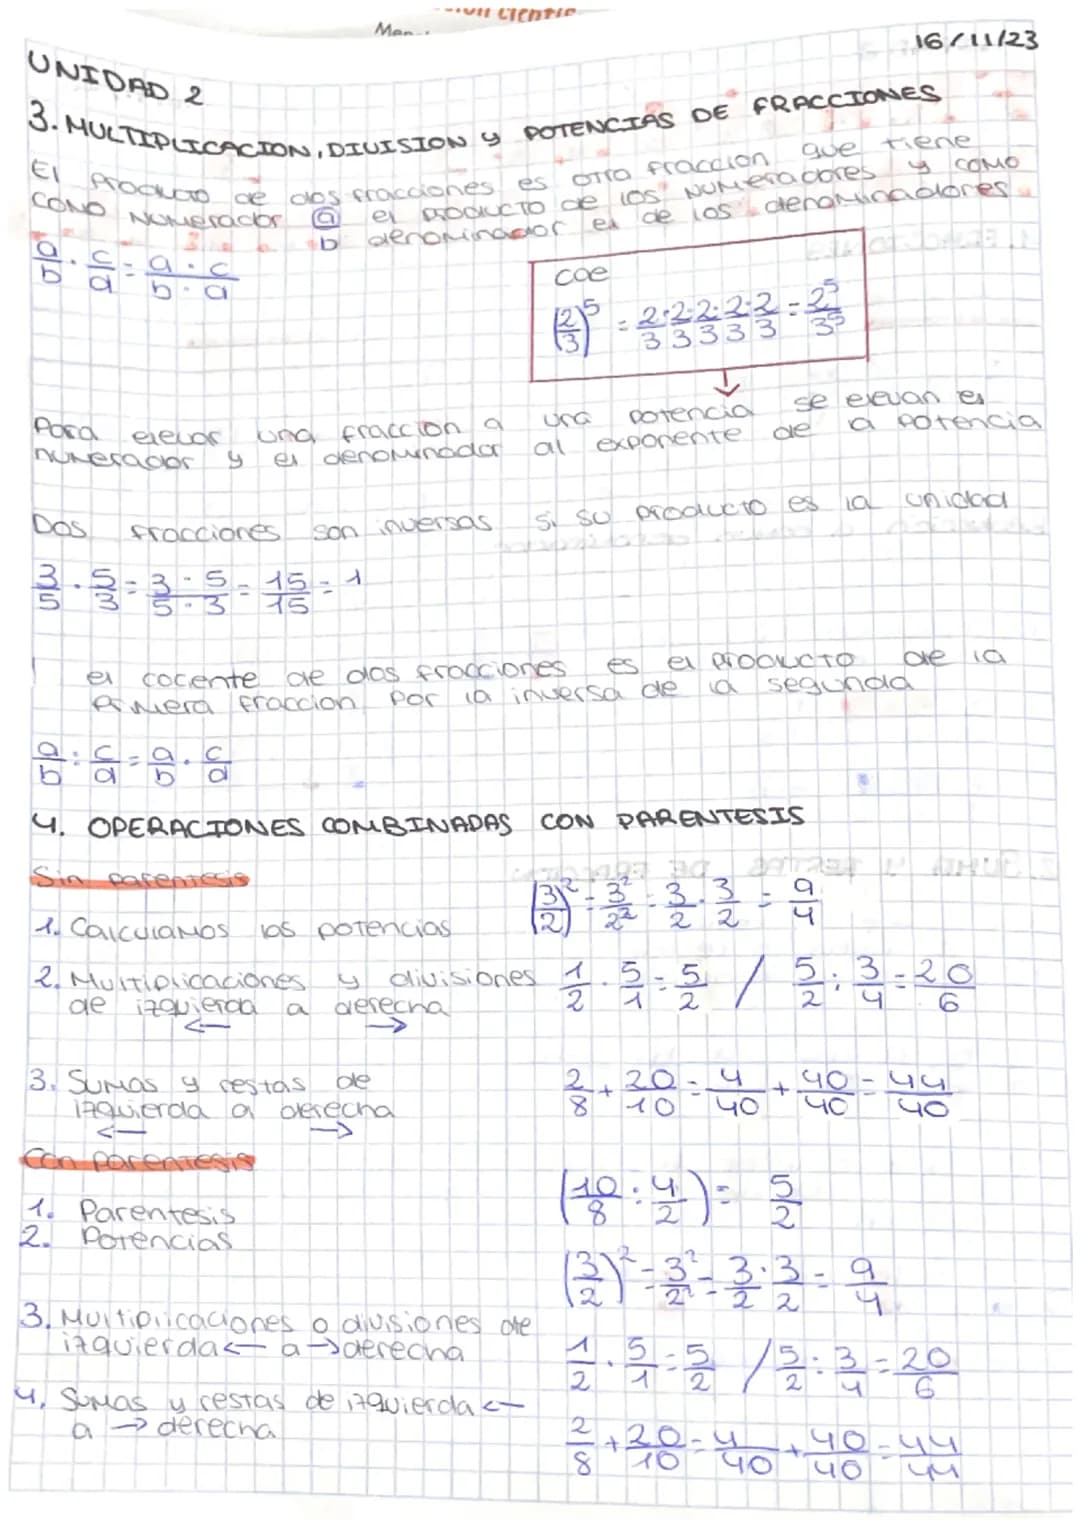 16/11/23
UNIDAD 2
3. MULTIPLICACION, DIVISION y POTENCIAS DE FRACCIONES
El producto de dos fracciones es otra fraccion que tiene
como numerador a el producto de los numeradores y como
b denominador el de los denominadores
a/b · c/d = a · c / b · d
cae
(2/3)^5 = 2·2·2·2·2 / 3 3 3 3 3 = 2^5/3^5
Para elevar una fraccion a una potencia se elevan el
numerador y el denominador al exponente de la potencia
Dos fracciones son inversas si su producto es la unidad
3/5 · 5/3 = 3 · 5 / 5 · 3 = 15/15 = 1
el cociente de dos fracciones es el producto de la
primera fraccion por la inversa de la segunda
a/b : c/d = a/b · c/d
4. OPERACIONES COMBINADAS CON PARENTESIS
Sin parentesis
1. Calculamos las potencias (3/2)^2 = 3^2/2^2 = 3/2 · 3/2 = 9/4
2. Multiplicaciones y divisiones 1/2 · 5/1 = 5/2 / 5/2 : 3/4 = 20/6
de izquierda a derecha
← →
3. Sumas y restas de 2/8 + 20/10 = 4/40 + 40/40 = 44/40
izquierda a derecha
← →
Con parentesis
1. Parentesis (10/8 : 4/2) = 5/2
2. Potencias (3/2)^2 = 3^2/2^2 = 3/2 · 3/2 = 9/4
3. Multiplicaciones o divisiones de
izquierda ← a → derecha 1/2 · 5/1 = 5/2 / 5/2 : 3/4 = 20/6
4. Sumas y restas de izquierda ←
a → derecha 2/8 + 20/10 = 4/40 + 40/40 = 44/44